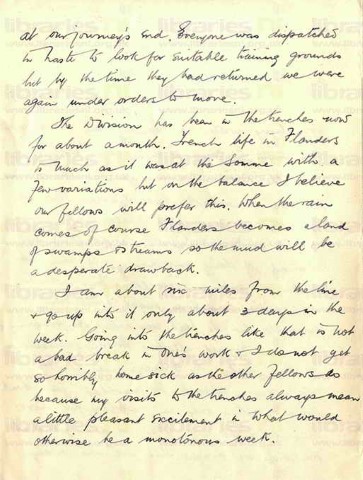 at our journey's end. Everyone was dispatched
in haste to look for suitable training grounds
but by the time they had returned we were
again under orders to move.
The Division has been in the trenches now
for about a month. Trench life in Flanders
is much as it was at the Somme with a
few variations but on the balance I believe
our fellows will prefer this. When the rain
comes of course Flanders becomes a land
of swamps & streams so the mud will be
a desperate drawback.
I am about six miles from the line
& go up into it only about 3 days in the
week. Going into the trenches like that is not
a bad break in one's work & I do not get
so horribly home sick as the other fellows do
because my visits to the trenches always mean
a little pleasant excitement in what would
otherwise be a monotonous week.